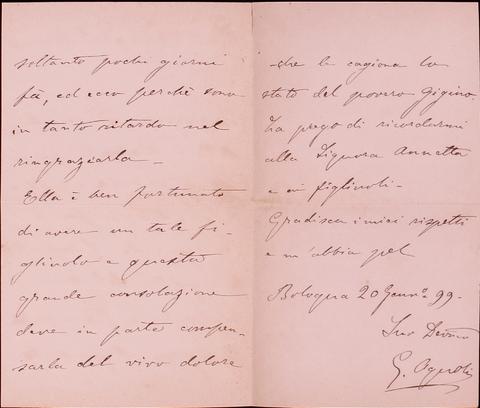 soltanto pochi giorni
fà, ed ecco perchè sono
in tanto ritardo nel
ringraziarla -
Ella è ben fortunato
di avere un tale fi-
gliuolo e questa
grande consolazione
deve in parte compen-
sarla del vivo dolore
che le cagiona lo
stato del povero Gigino.
La prego di ricordarmi
alla Signora Annetta
e ai figliuoli -
Gradisca i miei rispetti
e m'abbia pel
Bologna 20 Genn.º 99 -
Suo Devmo
G.